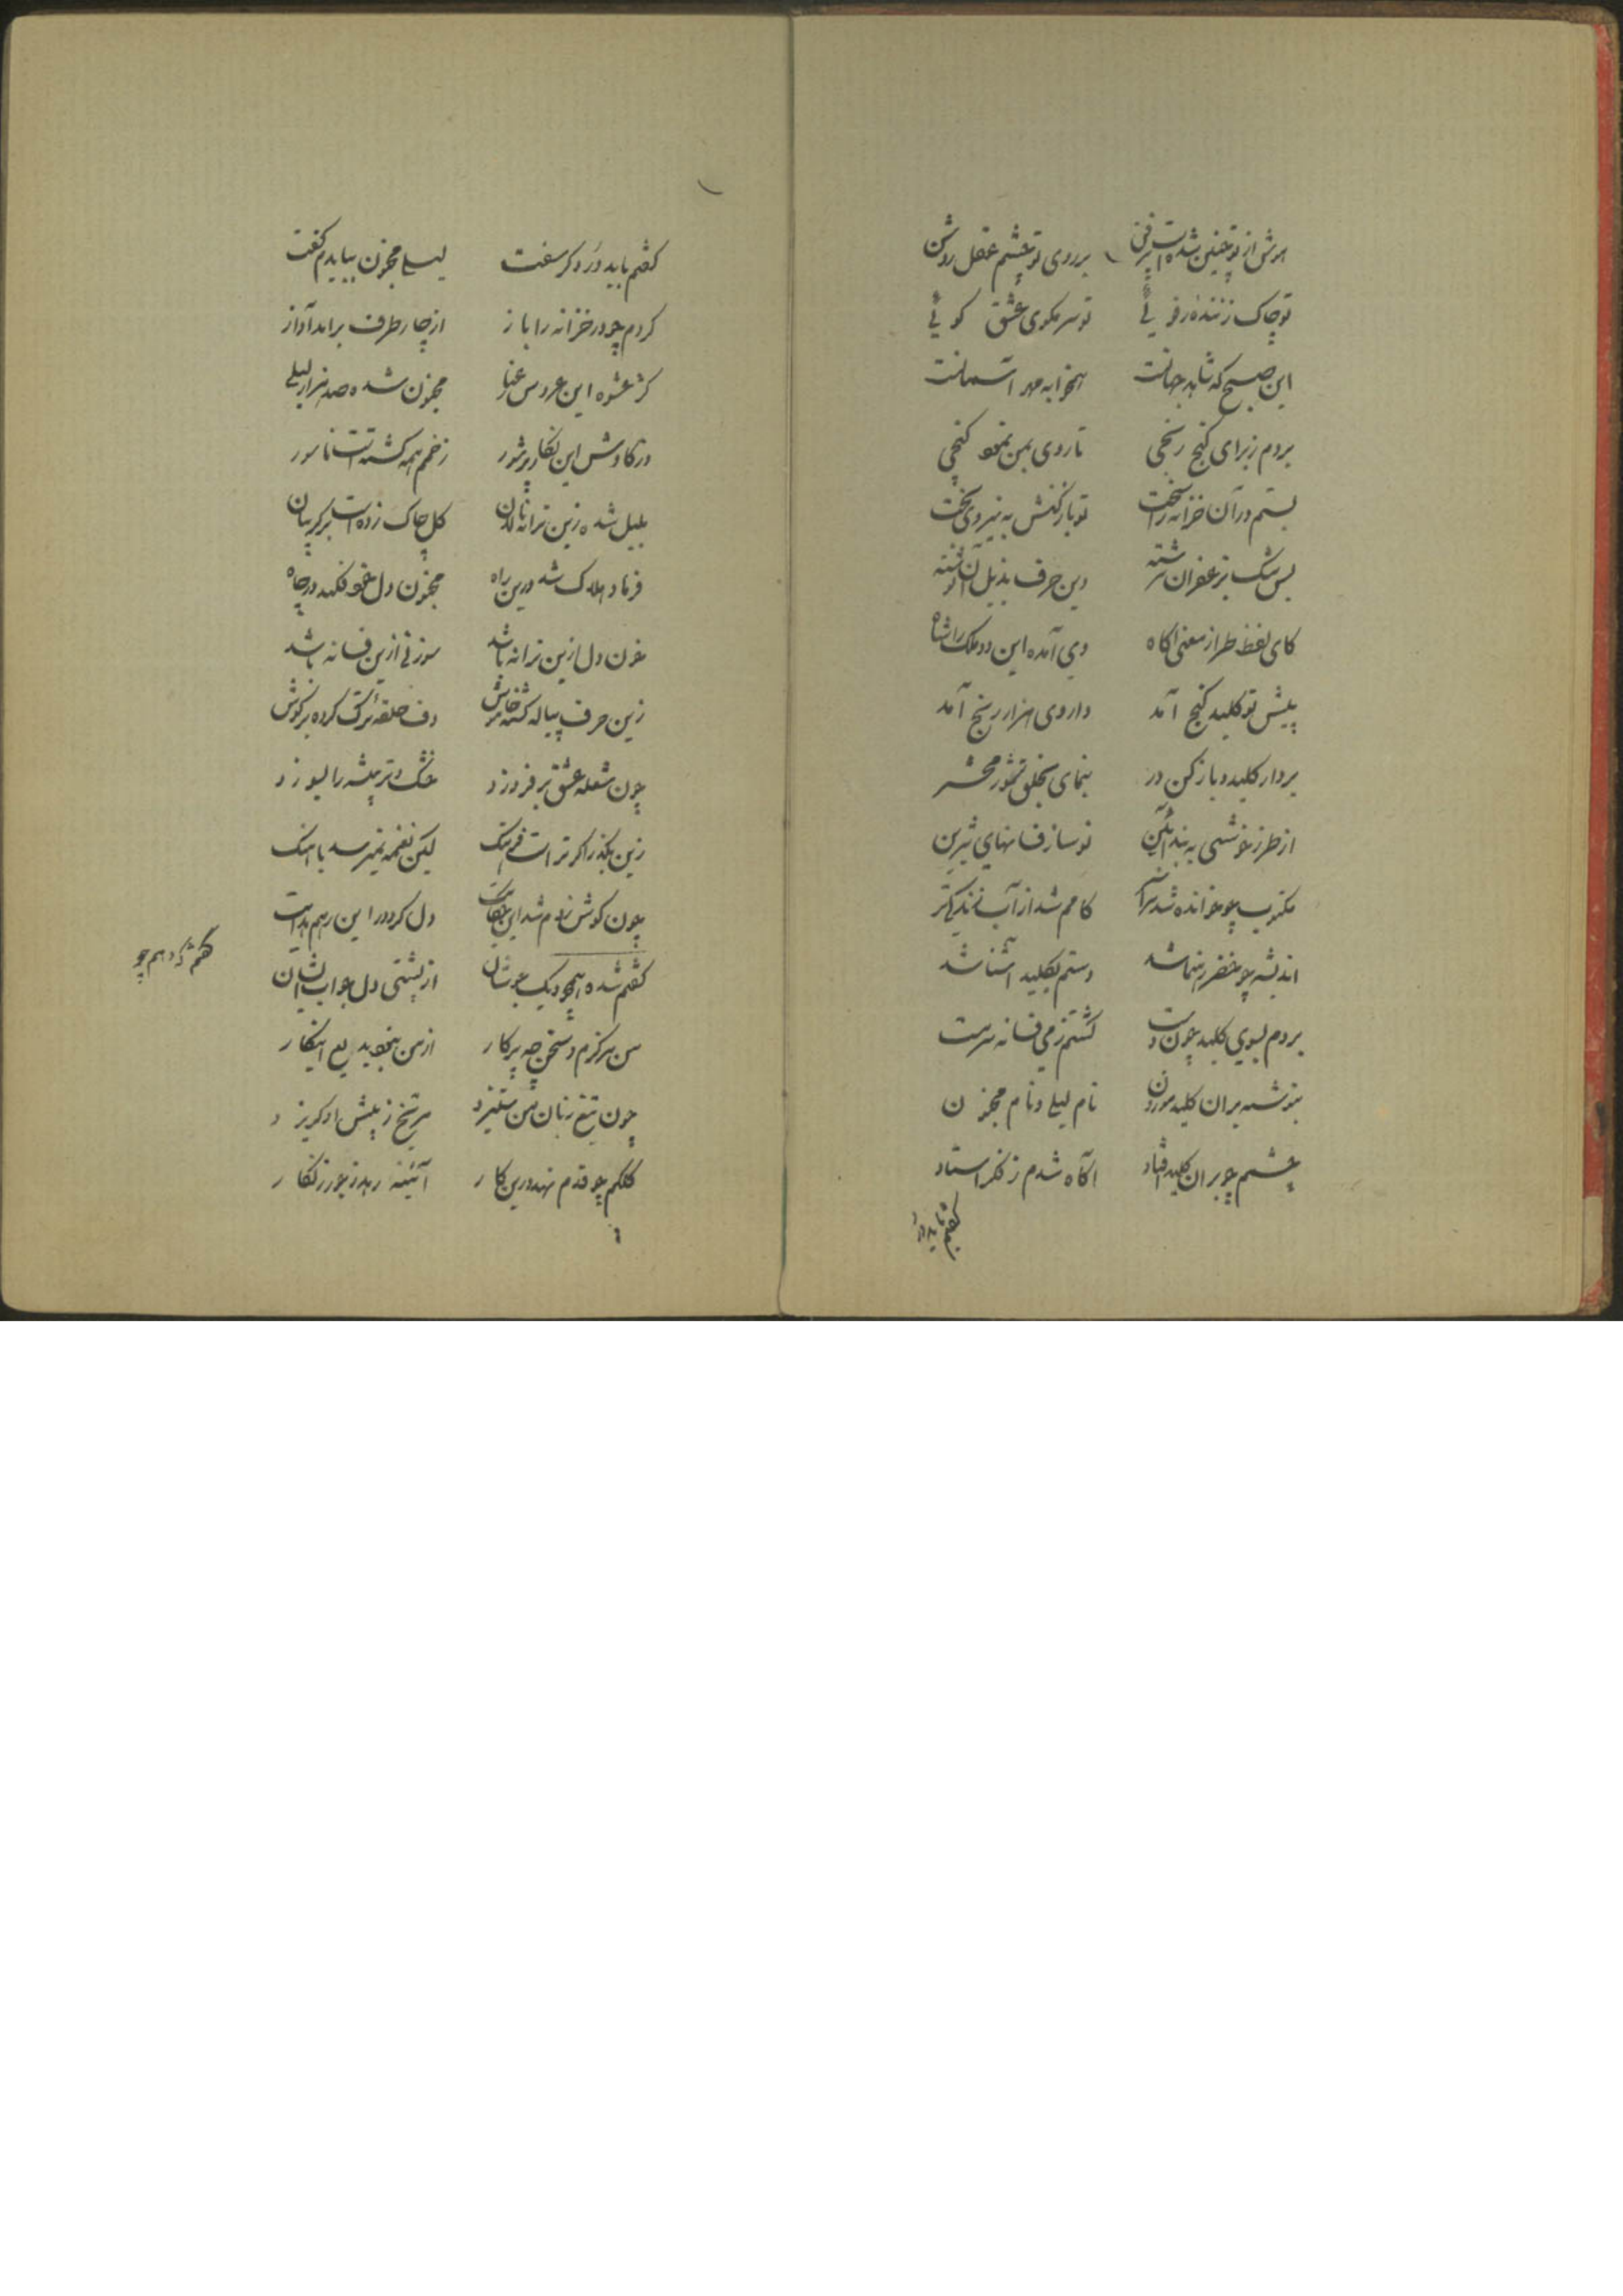 هوش از تو چنین شده است پرفن بر روی تو چشم عقل روشن
تو چاک زننده رفوئی تو سر مکوی عشق کوئی
این صبح که شاهد جهانست همخوابه مهر آسمانست
بردم ز برای گنج رنجی تا روی بمن نمود گنجی
بستم در آن خزانه را سخت تو باز کنش به نیروی بخت
بس مشک بزعفران سرشته وین حرف بذیل آن نوشته
کای لفظ طراز معنی آگاه وی آمده این دو ملک را شاه
پیش تو کلید گنج آمد داروی هزار رنج آمد
بردار کلید و باز کن در بنمای بخلق شور محشر
از طرز خوشی به بند آئین نو ساز فسانهای شیرین
مکتوب چو خوانده شد سراسر کامم شد از آب زندگی تر
اندیشه چو خضر رهنما شد دستم بکلید آشنا شد
بردم بسوی کلید چون دست گشتم ز می فسانه سرمست
بنوشته بران کلید موزون نام لیلی و نام مجنون
چشمم چو بران کلید افتاد آگاه شدم ز فکر استاد
گفتم باید در دگر سفت لیلی مجنون ببایدم گفت
کردم چو در خزانه را باز از چار طرف برامد آواز
کز عشوه این عروس رعنا مجنون شده صد هزار لیلی
در کاوش این نگار پرشور زخمم همه گشته است ناسور
بلبل شده زین ترانه نالان گل چاک زده است بر گریبان
فرهاد هلاک شد درین راه مجنون دل خود فکند در چاه
خون دل ازین ترانه باشد سوز نی ازین فسانه باشد
زین حرف پیاله گشته خاموش دف حلقه ترک کرده بر گوش
چون شعله عشق بر فروزد خشک و تر بیشه را بسوزد
زین بگذر اگر تراست فرهنگ لیکن نغمه نمیرسد باهنگ
چون گوش زدم شد این حکایت دل کرد در این رهم هدایت
گفتم شده همچو دیگ جوشان از پشتی دل جواب ایشان
من سرگرم و سخن چه پرکار از من نخوید بلع اینکار
چون تیغ زبان من ستیزد مریخ ز پیش او گریزد
کلکم چو قدم نهد درین کار آئینه رهد ز جور زنگار